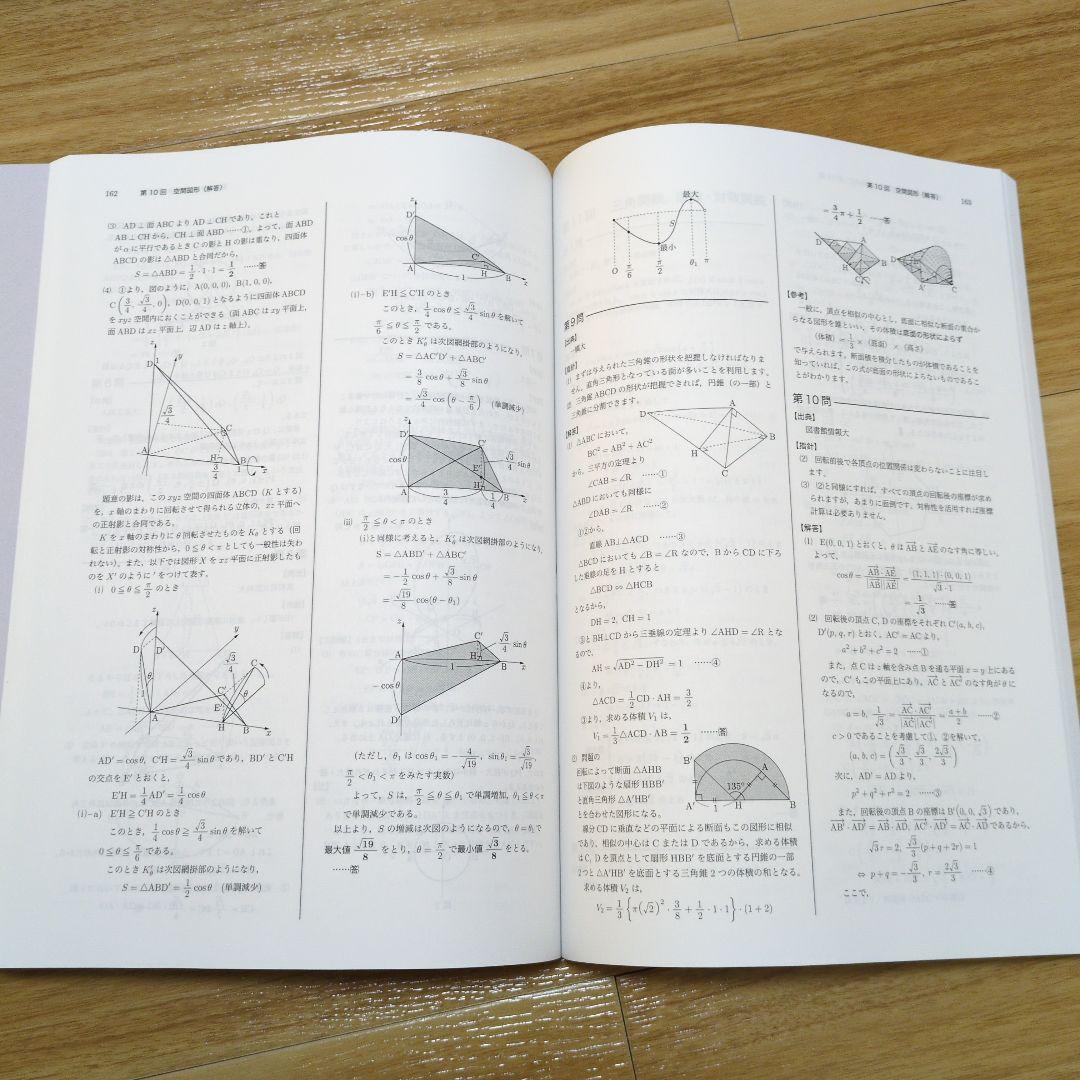 162 第10回 空間図形（解答）
(3) AD⊥面ABCよりAD⊥CHであり，これと
AB⊥CHから，CH⊥面ABD ……①，よって，面ABD
がαに平行であるときCの影とHの影は重なり，四面体
ABCDの影は△ABDと合同だから，
S＝△ABD＝1/2・1・1＝1/2 ……答
(4) ①より，図のように，A(0, 0, 0)，B(1, 0, 0)，
C(3/4, √3/4, 0)，D(0, 0, 1)となるように四面体ABCD
をxyz空間内におくことができる（面ABCはxy平面上，
面ABDはxz平面上，辺ADはz軸上）．
z
y
D 1
√3/4
C
A
H
3/4
1
B
x
題意の影は，このxyz空間の四面体ABCD（Kとする）
を，x軸のまわりに回転させて得られる立体の，xz平面へ
の正射影と合同である．
Kをx軸のまわりにθ回転させたものをKθとする（回
転と正射影の対称性から，0≦θ＜πとしても一般性は失わ
れない）．また，以下では図形Xをxz平面に正射影したも
のをX′のように′をつけて表す．
(i) 0≦θ≦π/2 のとき
z
y
D
D′
√3/4
C
1
θ
C′
θ
E′
A
H
B
x
AD′＝cosθ, C′H＝√3/4 sinθであり，BD′とC′H
の交点をE′とおくと，
E′H＝1/4 AD′＝1/4 cosθ
(i)−a) E′H≧C′Hのとき
このとき，1/4 cosθ≧√3/4 sinθを解いて
0≦θ≦π/6 である．
このときK′θは次図網掛部のようになり，
S＝△ABD′＝1/2 cosθ （単調減少）
z
D′
cosθ
C′
A
H
1
B
x
(i)−b) E′H≦C′Hのとき
このとき，1/4 cosθ≦√3/4 sinθを解いて
π/6≦θ≦π/2 である．
このときK′θは次図網掛部のようになり，
S＝△AC′D′＋△ABC′
＝3/8 cosθ＋√3/8 sinθ
＝√3/4 cos(θ−π/6) （単調減少）
z
D′
C′
cosθ
E′
√3/4 sinθ
A
3/4
H
1/4
B
x
(ii) π/2≦θ＜πのとき
(i)と同様に考えると，K′θは次図網掛部のようになり，
S＝△ABD′＋△ABC′
＝−1/2 cosθ＋√3/8 sinθ
＝√19/8 cos(θ−θ₁)
z
C′
√3/4 sinθ
A
H
1
B
x
−cosθ
D′
（ただし，θ₁はcosθ₁＝−4/√19, sinθ₁＝√3/√19,
π/2＜θ₁＜πをみたす実数）
よって，Sは，π/2≦θ≦θ₁で単調増加，θ₁≦θ＜π
で単調減少である．
以上より，Sの増減は次図のようになるので，θ＝θ₁で
最大値√19/8をとり，θ＝π/2で最小値√3/8をとる．
……答
第10回 空間図形（解答） 163
最大
S
最小
O
π/6
π/2
θ₁
π
第9問
【出典】
一橋大
(1) まずは与えられた三角錐の形状を把握しなければなりま
せん．直角三角形となっている面が多いことを利用します．
(2) 三角錐ABCDの形状が把握できれば，円錐（の一部）と
三角錐に分割できます．
【解答】
(1) △ABCにおいて，
BC²＝AB²＋AC²
から，三平方の定理より
∠CAB＝∠R ……①
△ABDにおいても同様に
∠DAB＝∠R ……②
①②から，
直線AB⊥△ACD ……③
△BCDにおいても∠B＝∠Rなので，BからCDに下ろ
した垂線の足をHとすると
△BCD∽△HCB
となるから，
DH＝2, CH＝1
③とBH⊥CDから三垂線の定理より∠AHD＝∠Rとな
るので，
AH＝√(AD²−DH²)＝1 ……④
④より，
△ACD＝1/2 CD・AH＝3/2
③より，求める体積V₁は，
V₁＝1/3△ACD・AB＝1/2 ……答
D
A
H
B
C
(2) 問題の
回転によって断面△AHB
は下図のような扇形HBB′
と直角三角形△A′HB′
とを合わせた図形になる．
B′
A
135°
A′
1
H
B
線分CDに垂直などの平面による断面もこの図形に相似
であり，相似の中心はCまたはDであるから，求める体積
はC, Dを頂点として扇形HBB′を底面とする円錐の一部
2つと△A′HB′を底面とする三角錐2つの体積の和となる．
求める体積V₂は，
V₂＝1/3{π(√2)²・3/8＋1/2・1・1}・(1＋2)
＝3/4 π＋1/2 ……答
D
A
H
B
C
D
A
C
【参考】
一般に，頂点を相似の中心とし，底面に相似な断面の集合か
らなる図形を錐といい，その体積は底面の形状によらず
（体積）＝1/3×（底面）×（高さ）
で与えられます．断面積を積分したものが体積であることを
知っていれば，この式が底面の形状によらないものであるこ
とがわかります．
第10問
【出典】
図書館情報大
【指針】
(2) 回転前後で各頂点の位置関係は変わらないことに注目し
ます．
(3) (2)と同様にすれば，すべての頂点の回転後の座標が求め
られますが，あまりに面倒です．対称性を活用すれば座標
計算は必要ありません．
【解答】
(1) E(0, 0, 1)とおくと，θはABとAEのなす角に等しい．
よって，
cosθ＝AB・AE/|AB||AE|＝(1, 1, 1)・(0, 0, 1)/√3・1
＝1/√3 ……答
(2) 回転後の頂点C, Dの座標をそれぞれC′(a, b, c),
D′(p, q, r)とおく．AC′＝ACより，
a²＋b²＋c²＝2 ……①
また，点Cはz軸を含み点Bを通る平面x＝y上にある
ので，C′もこの平面上にあり，ACとAC′のなす角がθに
なるので，
a＝b, 1/√3＝AC・AC′/|AC||AC′|＝(a＋b)/2 ……②
c＞0であることを考慮して①，②を解いて，
(a, b, c)＝(√3/3, √3/3, 2√3/3)
次に，AD′＝ADより，
p²＋q²＋r²＝2 ……③
また，回転後の頂点Bの座標はB′(0, 0, √3)であり，
AB′・AD′＝AB・AD, AC′・AD′＝AC・ADであるから，
√3r＝2, √3/3(p＋q＋2r)＝1
⇔ p＋q＝−√3/3, r＝2√3/3 ……④
ここで，